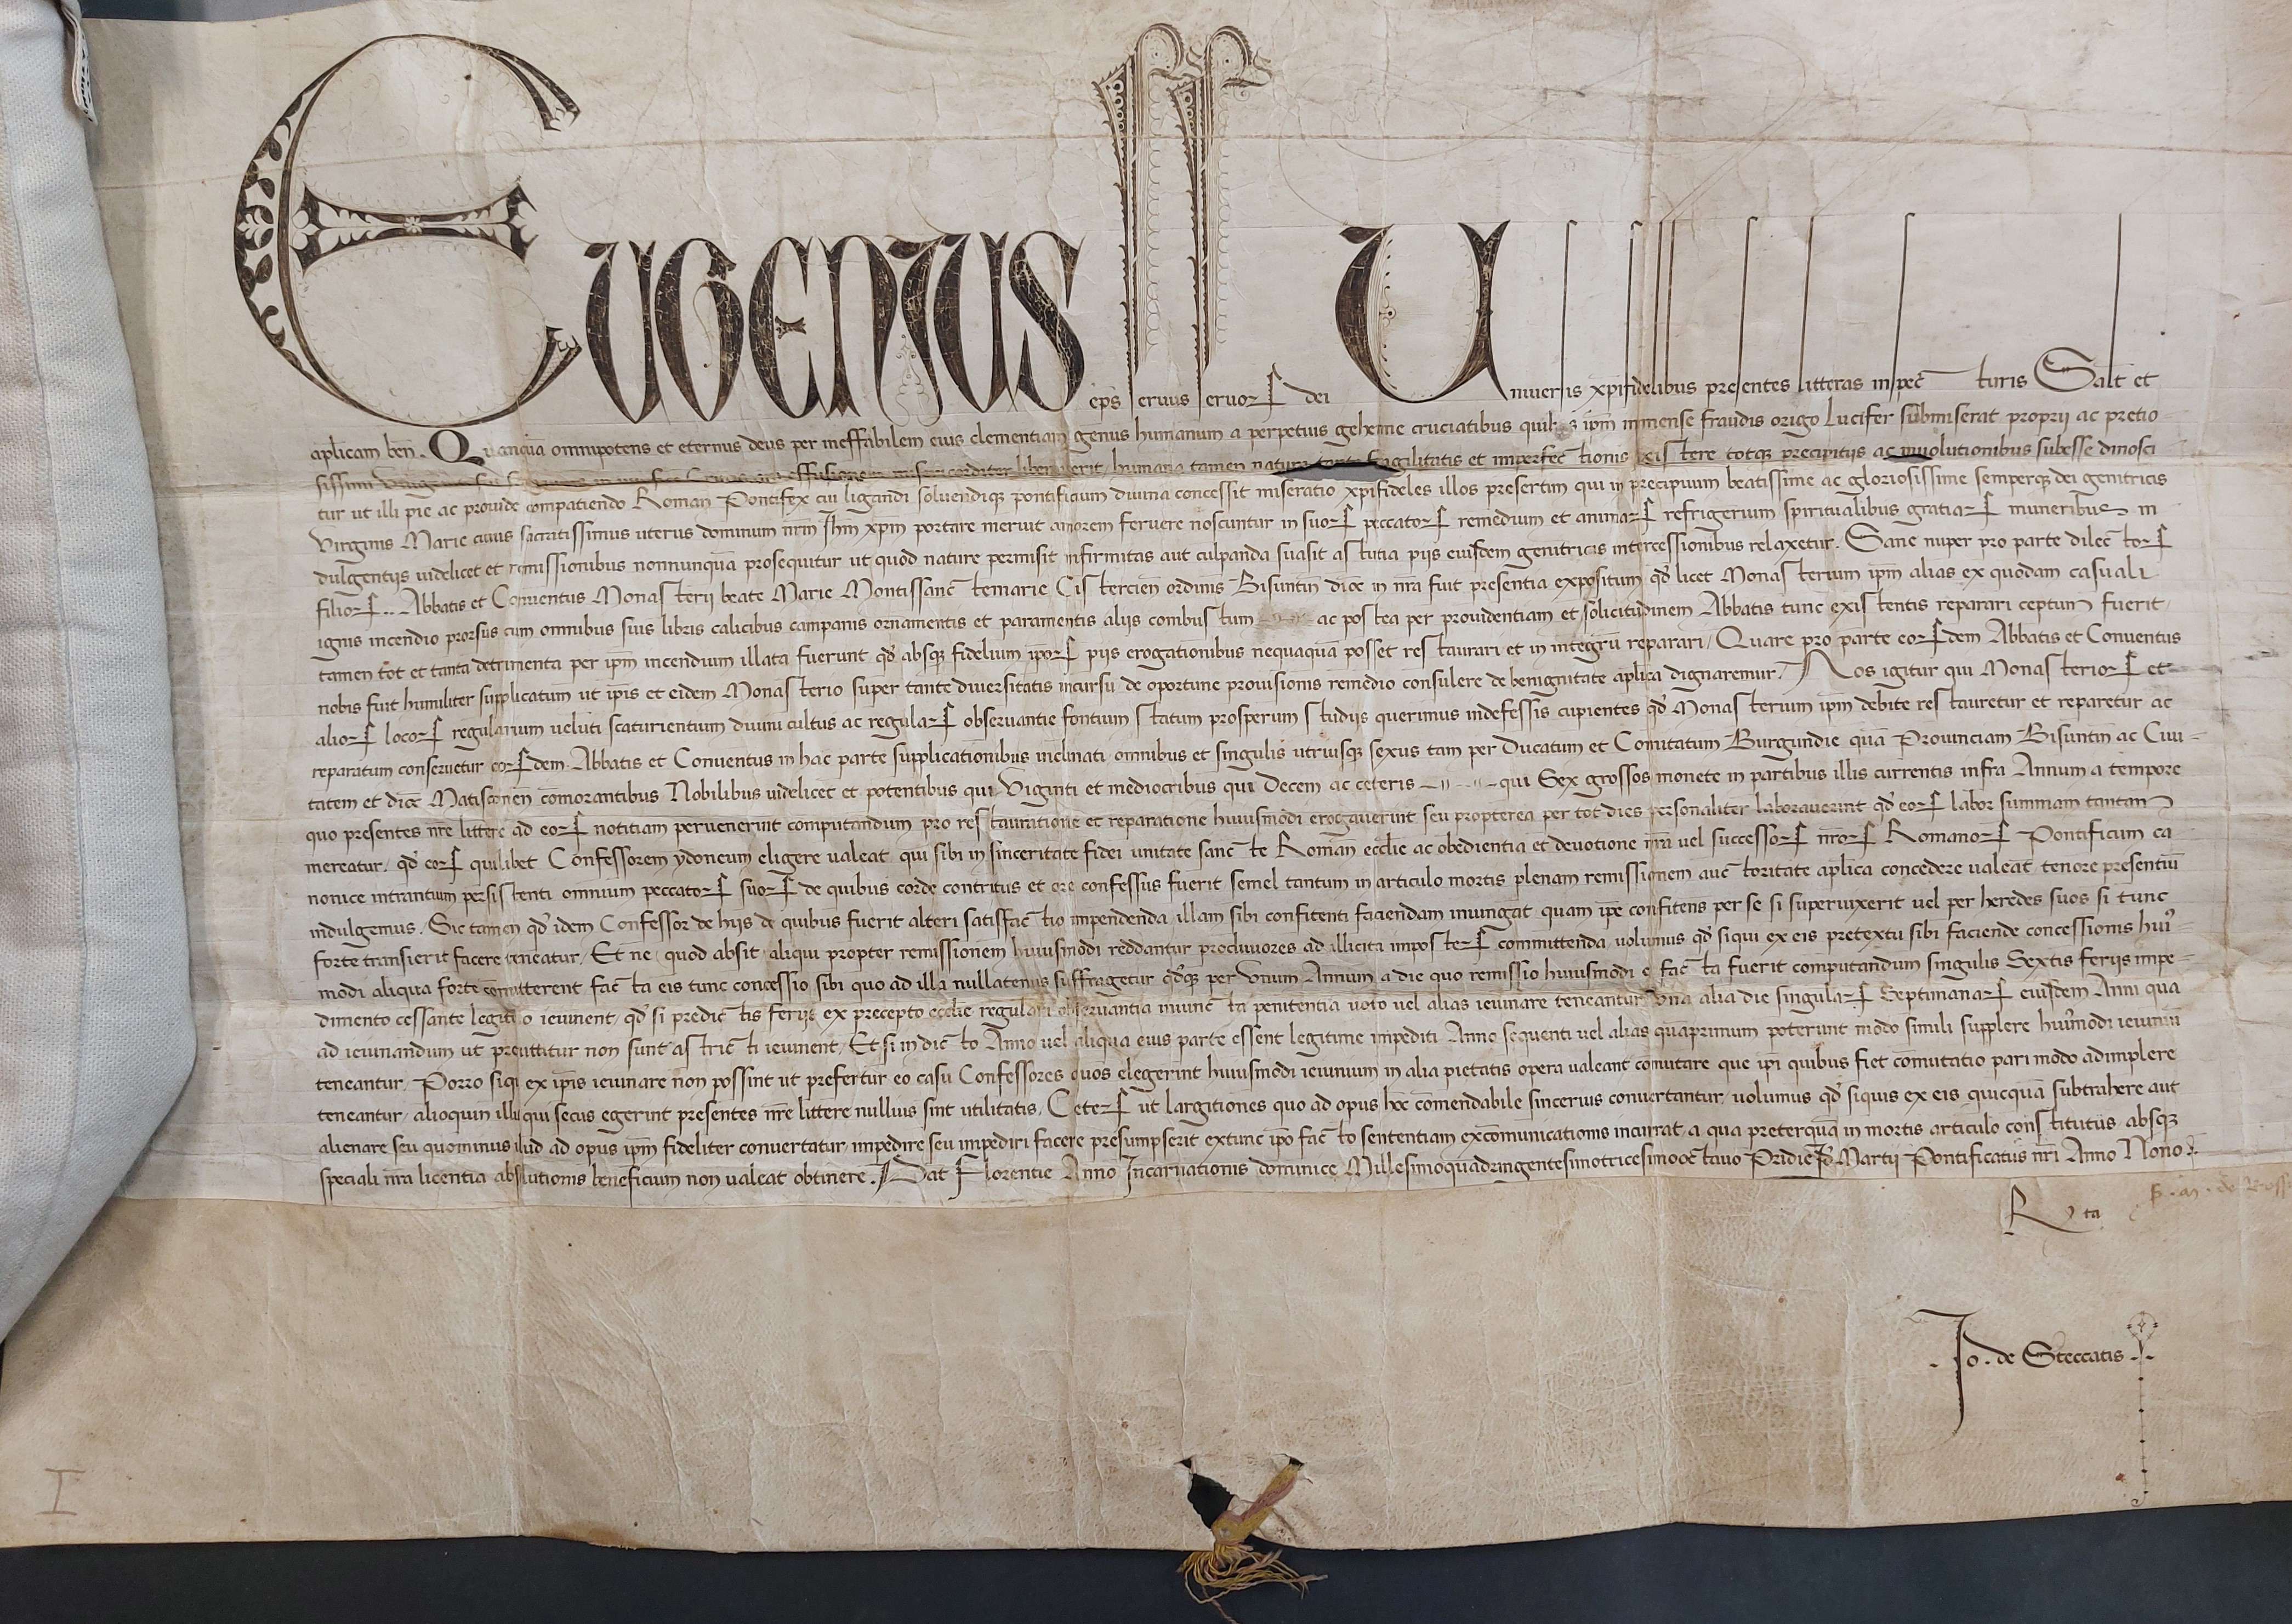 Eugenius ep̄s seruus seruoꝝ dei Vniuersis xp̄ifidelibus presentes litteras inspecturis Salt̄ et
aplicam ben̄. Quanqua omnipotens et eternus deus per ineffabilem eius clementiam genus humanum a perpetuis gehenne cruciatibus quibus ip̄m immense fraudis origo Lucifer submiserat proprii ac pretio-
sissimi effusionem misericorditer liberauerit, humana tamen natura tante fragilitatis et imperfectionis existere totqꝫ precipitiis ac inuolutionibus subesse dinosci
tur ut illi pie ac prouide compatiendo Roman̄ Pontifex cui ligandi soluendiqꝫ pontificium diuina concessit miseratio xp̄ifideles illos presertim qui in precipuum beatissime ac gloriosissime semperqꝫ dei genitricis
Virginis Marie cuius sacratissimus uterus dominum nr̄m Ihm̄ xp̄m portare meruit amorem feruere noscuntur in suoꝝ peccatoꝝ remedium et animaꝝ refrigerium spiritualibus gratiaꝝ muneribus in
dulgentiis uidelicet et remissionibus nonnunquā prosequitur ut quod nature permisit infirmitas aut culpanda suasit astutia piis eiusdem genitricis intercessionibus relaxetur. Sane nuper pro parte dilectoꝝ
filioꝝ .. Abbatis et Conuentus Monasterii beate Marie Montissanctemarie Cistercien̄ ordinis Bisuntin̄ dioc̄ in nr̄a fuit presentia expositum qd̄ licet Monasterium ip̄m alias ex quodam casuali
ignis incendio prorsus cum omnibus suis libris calicibus campanis ornamentis et paramentis aliis combustum ac postea per prouidentiam et solicitudinem Abbatis tunc existentis reparari ceptum fuerit,
tamen tot et tanta detrimenta per ip̄m incendium illata fuerunt qd̄ absqꝫ fidelium ip̄oꝝ piis erogationibus nequaquā posset restaurari et in integrū reparari, Quare pro parte eoꝝdem Abbatis et Conuentus
nobis fuit humiliter supplicatum ut ip̄is et eidem Monasterio super tante diuersitatis incursu de oportune prouisionis remedio consulere de benignitate aplica dignaremur. Nos igitur qui Monasterioꝝ et
alioꝝ locoꝝ regularium ueluti scaturientium diuini cultus ac regulaꝝ obseruantie fontium statum prosperum studiis querimus indefessis cupientes qd̄ Monasterium ip̄m debite restauretur et reparetur ac
reparatum conseruetur eoꝝdem Abbatis et Conuentus in hac parte supplicationibus inclinati omnibus et singulis utriusqꝫ sexus tam per Ducatum et Comitatum Burgundie quā Prouinciam Bisuntin̄ ac Ciui-
tatem et dioc̄ Matisconen̄ com̄orantibus Nobilibus uidelicet et potentibus qui Viginti et mediocribus qui Decem ac ceteris qui Sex grossos monete in partibus illis currentis infra Annum a tempore
quo presentes nr̄e littere ad eoꝝ notitiam peruenerint computandum pro restauratione et reparatione huiusmodi erogauerint seu propterea per tot dies personaliter laborauerint qd̄ eoꝝ labor summam tantam
mereatur, qd̄ eoꝝ quilibet Confessorem ydoneum eligere ualeat qui sibi in sinceritate fidei unitate sancte Roman̄ eccl̄ie ac obedientia et deuotione nr̄a uel successoꝝ nr̄oꝝ Romanoꝝ Pontificum ca
nonice intrantium persistenti omnium peccatoꝝ suoꝝ de quibus corde contritus et ore confessus fuerit semel tantum in articulo mortis plenam remissionem auctoritate aplica concedere ualeat tenore presentiū
indulgemus. Sic tamen qd̄ idem Confessor de hiis de quibus fuerit alteri satisfactio impendenda illam sibi confitenti faciendam iniungat quam ip̄e confitens per se si superuixerit uel per heredes suos si tunc
forte transierit facere teneatur, Et ne quod absit aliqui propter remissionem huiusmodi reddantur procliuiores ad illicita imposteꝝ committenda, uolumus qd̄ siqui ex eis pretextu sibi faciende concessionis hui9-
modi aliqua forte comitterent facta eis tunc concessio sibi quo ad illa nullatenus suffragetur qd̄qꝫ per Vnum Annum a die quo remissio huiusmodi e facta fuerit computandum singulis Sextis feriis impe-
dimento cessante legitimo ieiunent, qd̄ si predictis feriis ex precepto eccl̄ie regulari obseruantia iniuncta penitentia uoto uel alias ieiunare teneantur Vna alia die singulaꝝ Septimanaꝝ eiusdem Anni qua
ad ieiunandum ut premittitur non sunt astricti ieiunent, Et si in dicto Anno uel aliqua eius parte essent legitime impediti Anno sequenti uel alias quāprimum poterunt modo simili supplere hui9modi ieiuniū
teneantur, Porro siqui ex ip̄is ieiunare non possint ut prefertur eo casu Confessores quos elegerint huiusmodi ieiunium in alia pietatis opera ualeant com̄utare que ip̄i quibus fiet com̄utatio pari modo adimplere
teneantur, alioquin illis qui secus egerint presentes nr̄e littere nullius sint utilitatis, Ceteꝝ ut largitiones quo ad opus hoc com̄endabile sincerius conuertantur, uolumus qd̄ siquis ex eis quicquā subtrahere aut
alienare seu quominus illud ad opus ip̄m fideliter conuertatur impedire seu impediri facere presumpserit extunc ip̄o facto sententiam excom̄unicationis incurrat a qua preterquā in mortis articulo constitutus absqꝫ
speciali nr̄a licentia absolutionis beneficium non ualeat obtinere. Dat̄ Florentie Anno Incarnationis dominice Millesimoquadringentesimotricesimooctauo Pridie Id̄ Martii Pontificatus nr̄i Anno Nono
Rta
.Jo. de Steccatis.
I